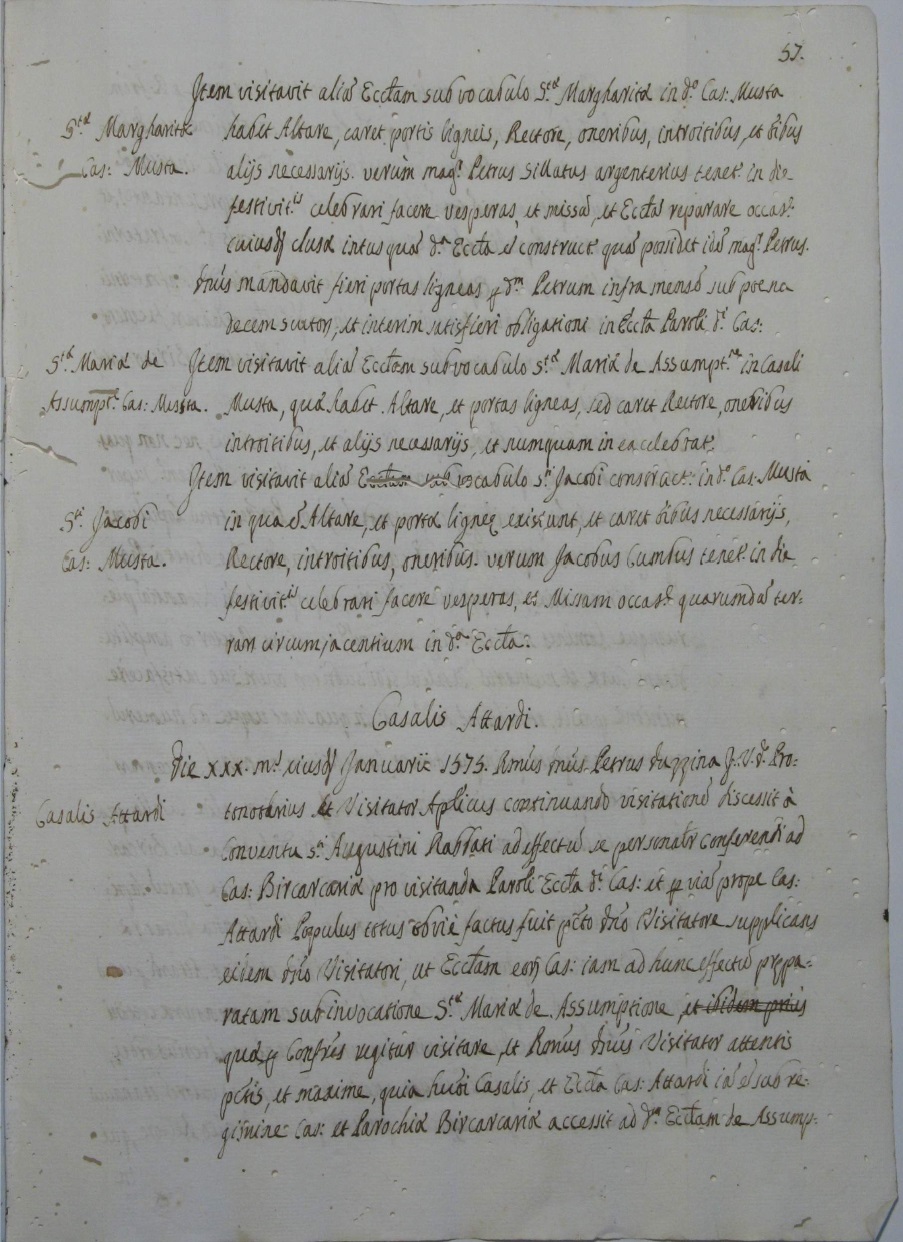 57.
Item visitavit aliã Eccłam sub vocabulo S.tæ Margharitæ in d.o Cas: Musta
S.tæ Margharitæ
Cas: Musta.
habet Altare, caret portis ligneis, Rectore, oneribus, introitibus, et oĩbus
alijs necessarijs. verùm mag.r Petrus Sillatus argenterius tenet.r in die
festivit.is celebrari facere vesperas, et missã, et Eccłã reparare occas.e
cuiusdã clusæ intus quã d.a Eccła est construct.a quã possidet idẽ mag.r Petrus.
Dñus mandavit fieri portas ligneas p d.m Petrum infra mensẽ sub poena
decem scutor, et interim satisfieri obligationi in Eccła Paroli d.i Cas:
S.tæ Mariæ de
Assumpt.e Cas: Musta.
Item visitavit aliã Eccłam sub vocabulo S.tæ Mariæ de Assumpt.ne in Casali
Musta, quæ habet Altare, et portas ligneas, sed caret Rectore, oneribus
introitibus, et alijs necessarijs, et numquam in ea celebrat.r
Item visitavit aliã Eccłam sub vocabulo S.ti Jacobi construct: in d.o Cas: Musta
S.ti Jacobi
Cas: Musta.
in qua Altare, et portæ ligneę existunt, et caret oĩbus necessarijs,
Rectore, introitibus, oneribus. verum Jacobus Cumbus tenet.r in die
festivit.is celebrari facere vesperas, et Missam occas.e quarumdã ter-
rarũ circumjacentium in d.a Eccła.
Casalis Attardi.
Casalis Attardi
Die xxx. m.s eiusdẽ Januarii 1575. Rm̃us Dñus Petrus Duzzina J. V. D. Pro-
tonotarius et Visitator Aplicus continuando visitationẽ discessit à
Conventu s.ti Augustini Rabbati ad effectũ se personalr conferendi ad
Cas: Bircarcaræ pro visitanda Paroli Eccła d.i Cas: et p viã prope Cas:
Attardi Populus totus obviẽ factus fuit p̃cto dño Visitatore supplicans
eidem dño Visitatori, ut Eccłam eorũ Cas: iam ad hunc effectũ prępa-
ratam sub invocatione S.tæ Mariæ de Assumptione et ibidem prius
quæ p Confres regitur visitare, et Rm̃us Dñus Visitator attentis
p̃ctis, et maxime, quia huĩoi Casalis, et Eccła Cas: Attardi sub re-
gimine Cas: et Parochiæ Bircarcaræ accessit ad d.m Eccłam de Assump-